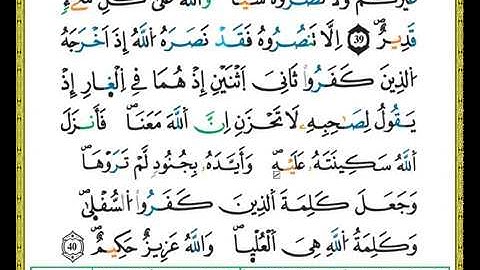 غَيْرَكُمْ وَلَا تَضُرُّوهُ شَيْـًٔا ۗ وَاللَّهُ عَلَىٰ كُلِّ شَيْءٍ
قَدِيرٌ ۝٣٩ إِلَّا تَنصُرُوهُ فَقَدْ نَصَرَهُ اللَّهُ إِذْ أَخْرَجَهُ
الَّذِينَ كَفَرُوا ثَانِيَ اثْنَيْنِ إِذْ هُمَا فِي الْغَارِ إِذْ
يَقُولُ لِصَاحِبِهِ لَا تَحْزَنْ إِنَّ اللَّهَ مَعَنَا ۖ فَأَنزَلَ
اللَّهُ سَكِينَتَهُ عَلَيْهِ وَأَيَّدَهُ بِجُنُودٍ لَّمْ تَرَوْهَا
وَجَعَلَ كَلِمَةَ الَّذِينَ كَفَرُوا السُّفْلَىٰ ۗ
وَكَلِمَةُ اللَّهِ هِيَ الْعُلْيَا ۗ وَاللَّهُ عَزِيزٌ حَكِيمٌ ۝٤٠